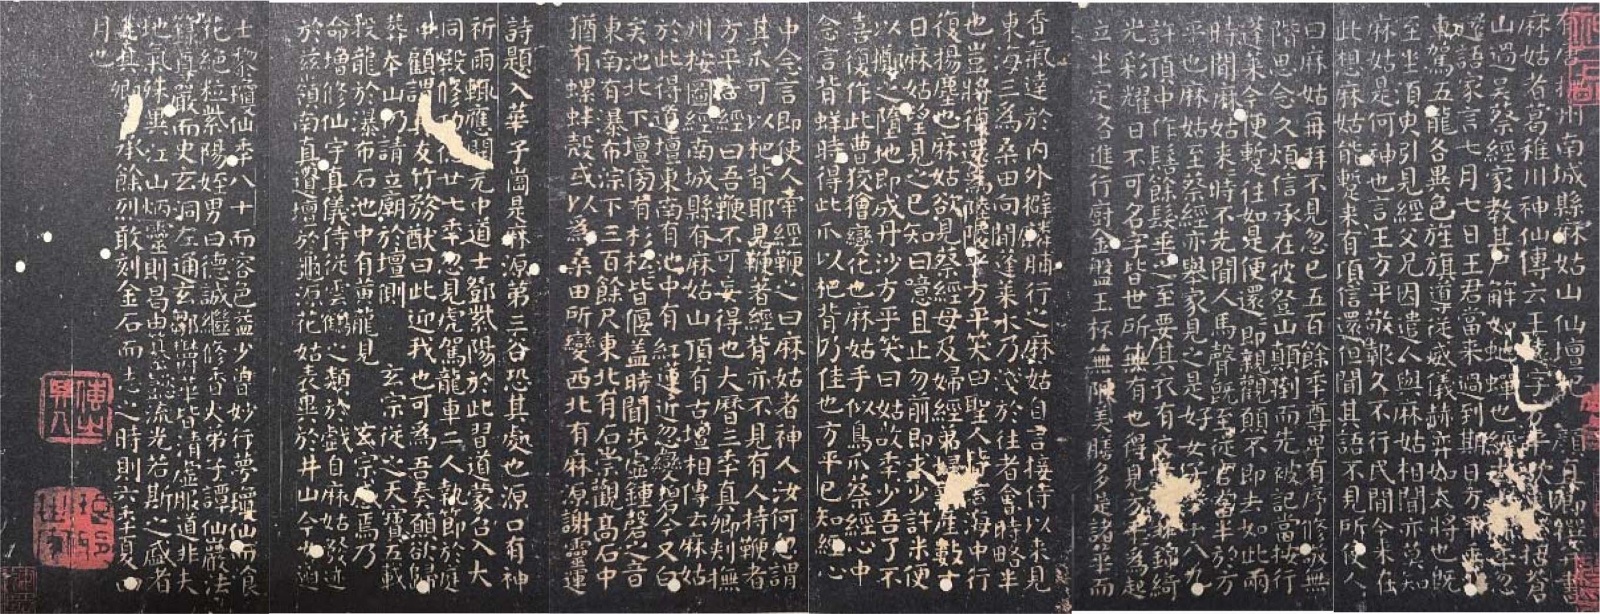 有唐撫州南城縣麻姑山仙壇記 顏真卿撰書
麻姑者葛稚川神仙傳云王遠字方平欲東括蒼
山過吳蔡經家教其尸解如蛇蟬也經去年忽
還語家言七月七日王君當來過到期日方平乘
駕五龍各異色旌旗導從威儀赫弈如大將也既
至坐須臾引見經父兄因遣人與麻姑相聞亦莫知
麻姑是何神也言王方平敬報久不行民間今來在
此想麻姑能暫來有頃信還但聞其語不見所使人
曰麻姑再拜不見忽已五百餘年尊卑有序修敬無
階思念久煩信承在彼登山顛倒而先被記當按行
蓬萊今便暫往如是便還即親觀願不即去如此兩
時間麻姑來時不先聞人馬聲既至從官當半於方
平也麻姑至蔡經亦舉家見之是好女子年十八九
許頂中作髻餘髮垂之至要其衣有文錦綺
光彩耀日不可名字皆世所無有也得見方平為起
立坐定各進行廚金盤玉杯無限美膳多是諸華而
香氣達於內外擗麟脯行之麻姑自言接侍以來見
東海三為桑田向間蓬萊水乃淺於往者會時略半
也豈將復還為陸陵乎方平笑曰聖人皆言海中行
復揚塵也麻姑欲見蔡經母及婦經弟婦新產數十
日麻姑望見之已知曰噫且止勿前即求少許米便
以擲之墮地即成丹沙方平笑曰姑故年少吾了不
喜復作此曹狡獪變化也麻姑手似鳥爪蔡經心中
念言背蛘時得此爪以杷背乃佳也方平已知經心
中念言即使人牽經鞭之曰麻姑者神人汝何忽謂
其爪可以杷背耶見鞭著經背亦不見有人持鞭者
方平告經曰吾鞭不可妄得也大曆三年真卿刾撫
州按圖經南城縣有麻姑山頂有古壇相傳云麻姑
於此得道壇東南有池中有紅蓮近忽變碧今又白
矣池北下壇傍有杉松皆偃蓋時聞步虛鍾磬之音
東南有瀑布淙下三百餘尺東北有石崇觀高石中
猶有螺蚌殼或以為桑田所變西北有麻源謝靈運
詩題入華子崗是麻源第三谷恐其處也源口有神
祈雨輒應開元中道士鄧紫陽於此習道蒙召入大
同殿修功德廿七年忽見虎駕龍車二人執節於庭
中顧謂其友竹務猷曰此迎我也可為吾奏願欲歸
葬本山仍請立廟於壇側 玄宗從之天寶五載
投龍於瀑布石池中有黃龍見 玄宗感焉乃
命增修仙宇真儀侍從雲鶴之類於戲自麻姑發迹
於茲嶺南真遺壇於龜源花姑表異於井山今女道
士黎瓊仙年八十而容色益少曾妙行夢瓊仙而飡
花絕粒紫陽姪男曰德誠繼修香火弟子譚仙巖法
籙尊嚴而史玄洞左通玄鄒鬱華皆清虛服道非夫
地氣殊異江山炳靈則曷由纂懿流光若斯之盛者
矣真卿幸承餘烈敢刻金石而志之時則六年夏四
月也